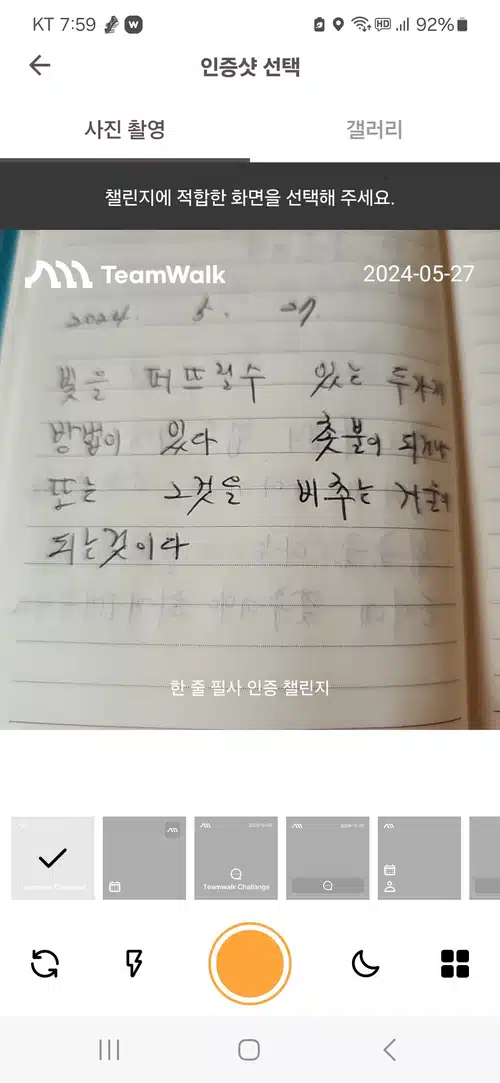 KT 7:59
92%
인증샷 선택
사진 촬영 갤러리
챌린지에 적합한 화면을 선택해 주세요.
TeamWalk 2024-05-27
2024. 5. 27.
빛을 퍼뜨릴수 있는 두가지
방법이 있다 촛불이 되거나
또는 그것을 비추는 거울이
되는것이다
한 줄 필사 인증 챌린지
Teamwalk Challenge